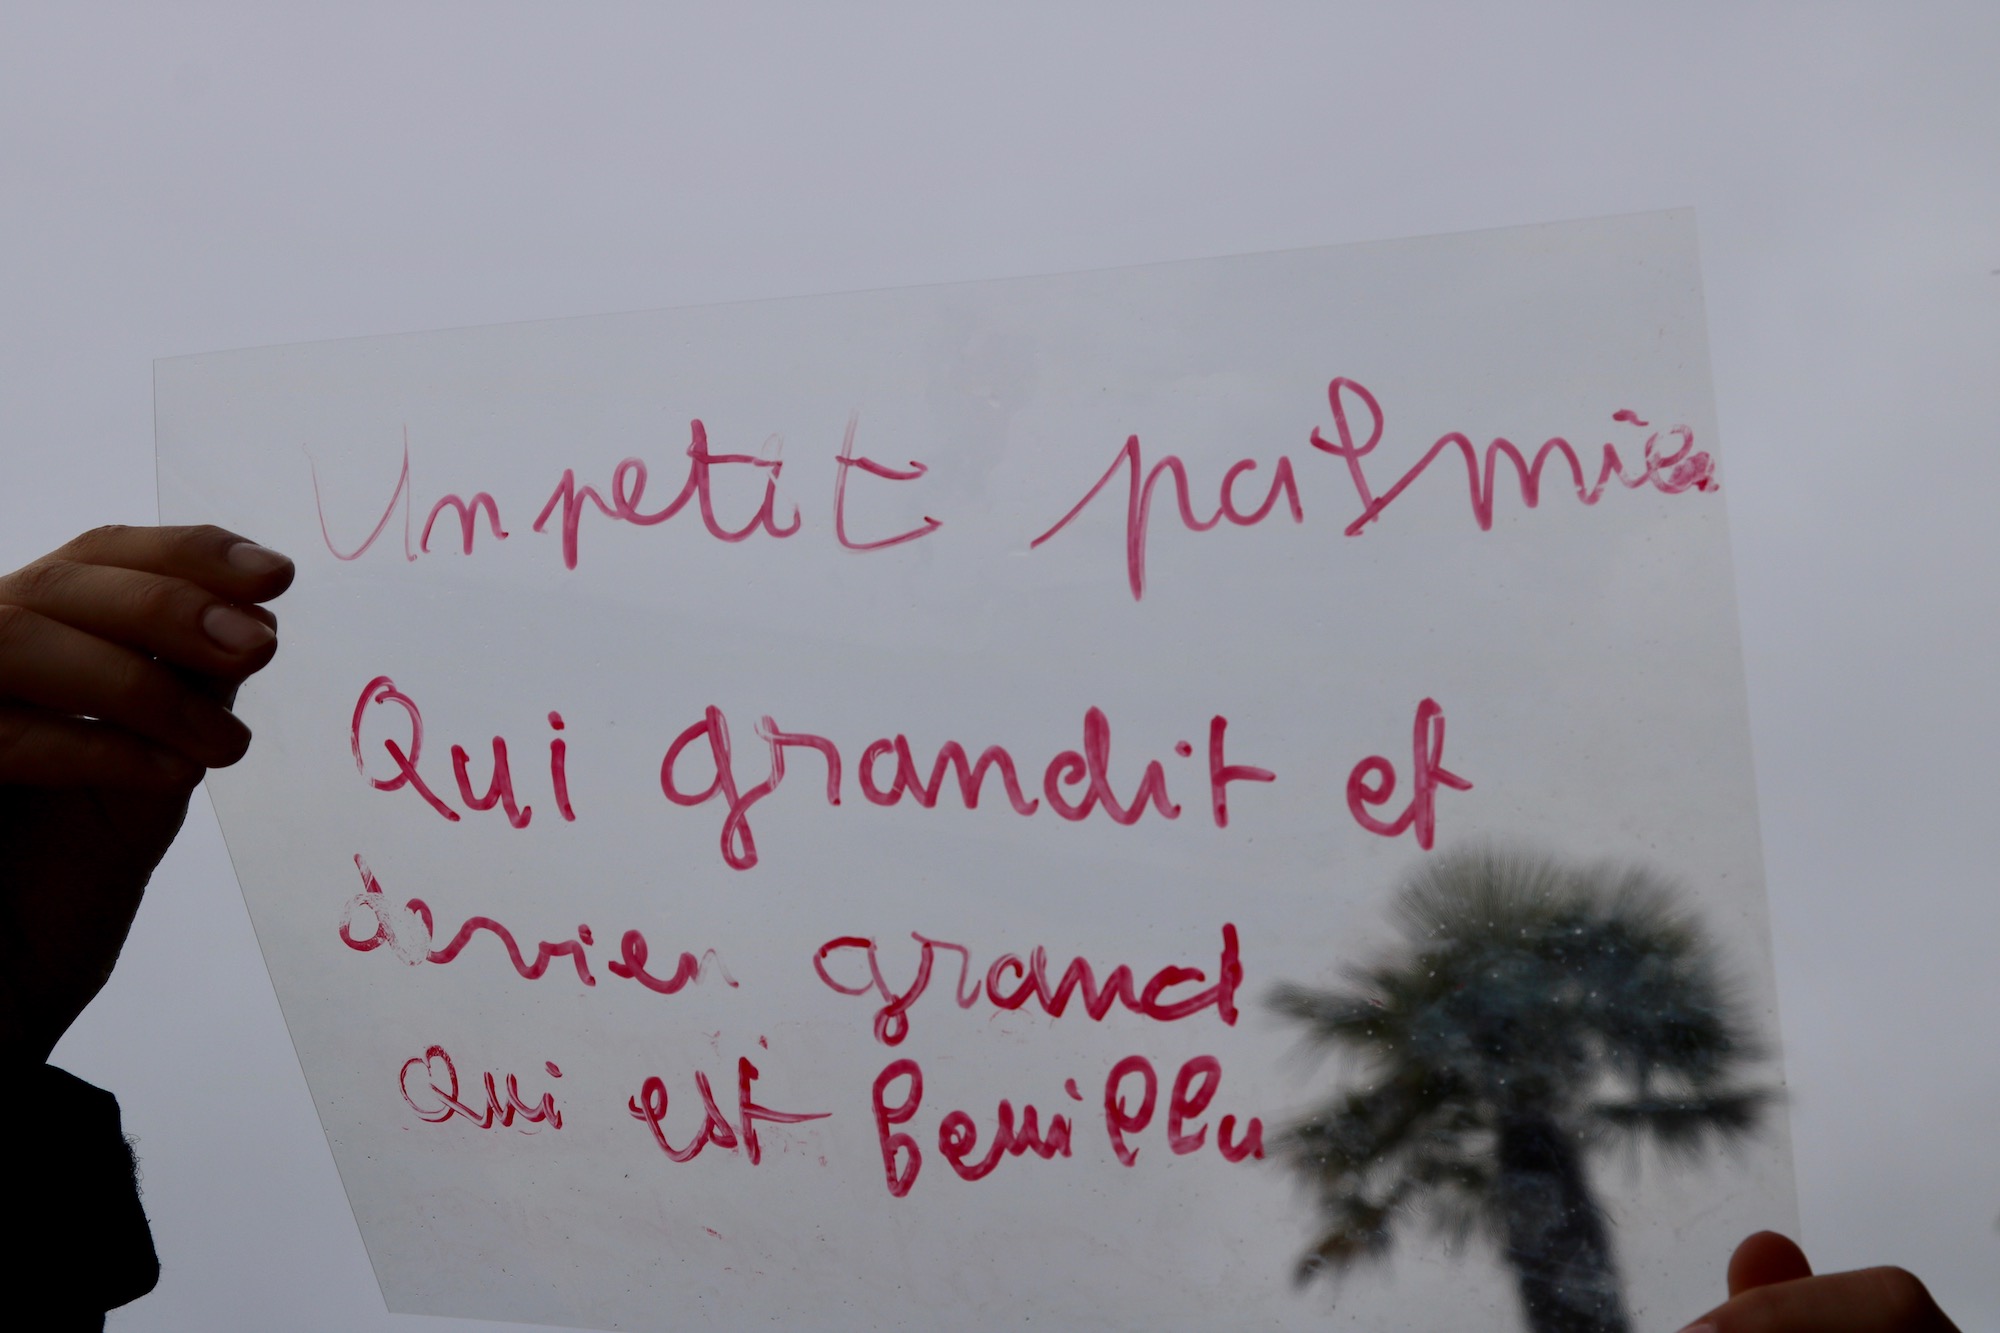 Un petit palmier
Qui grandit et
devien grand
Qui est feuillu